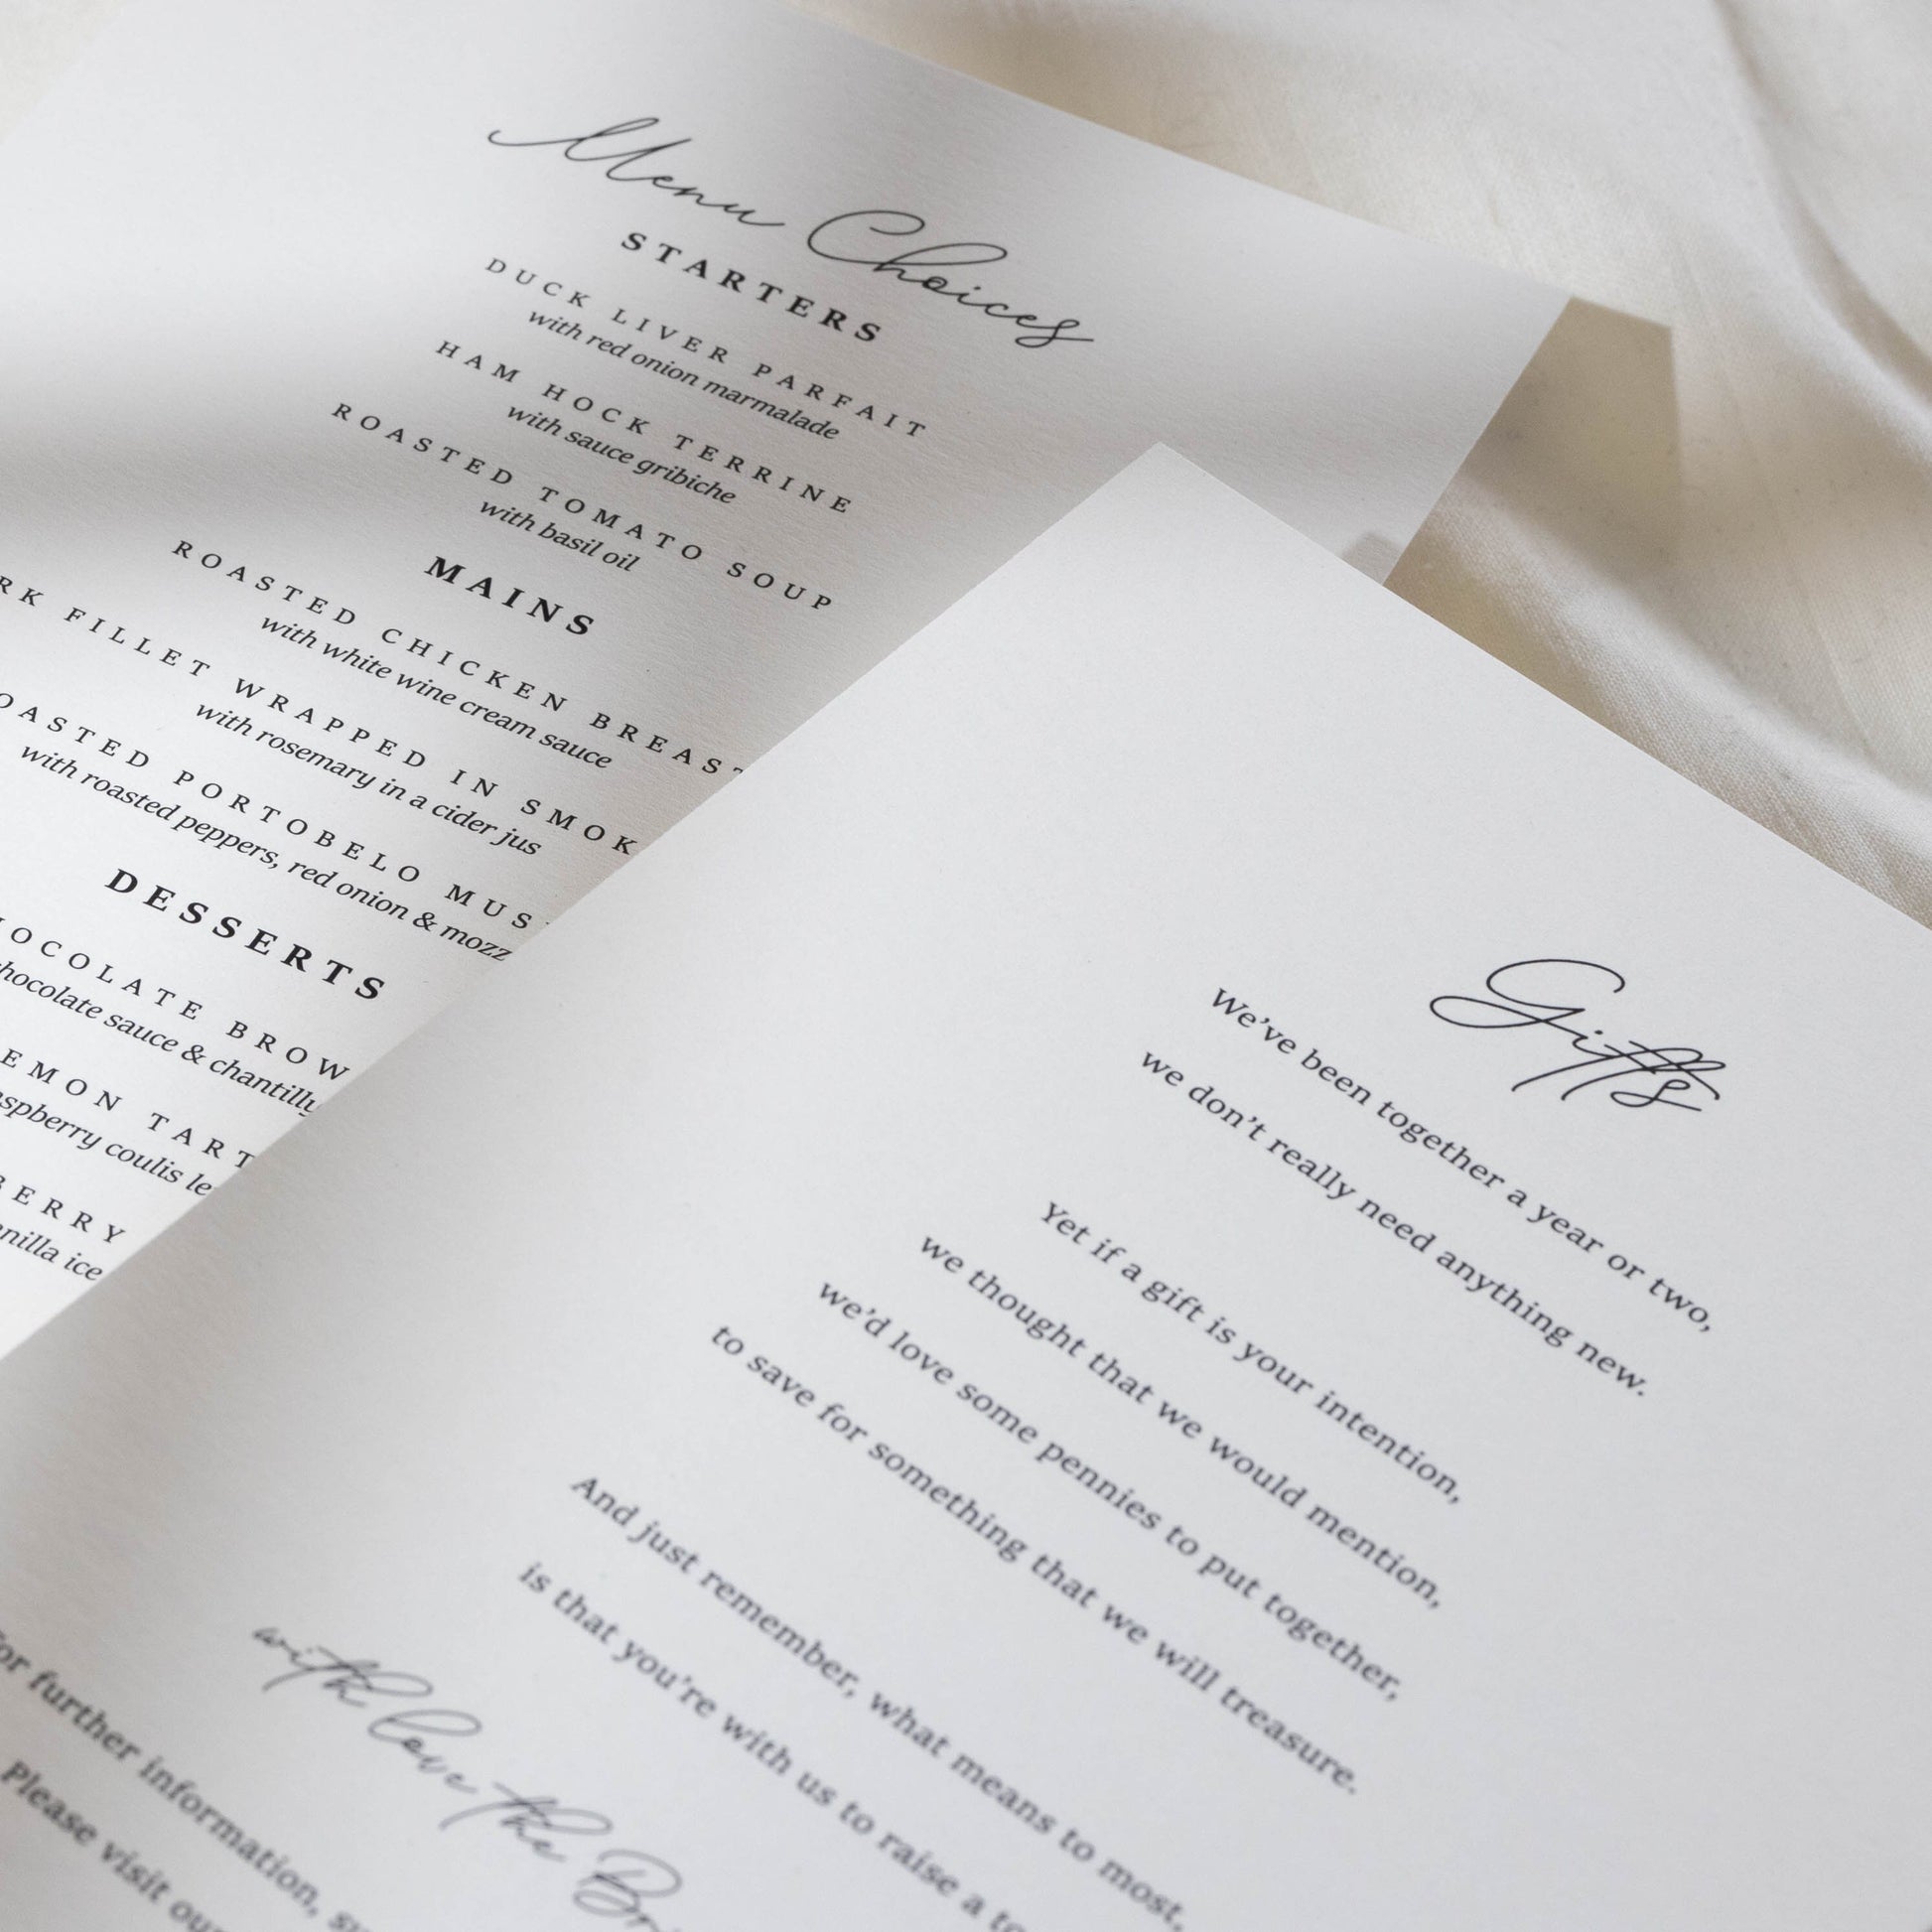 Menu Choices
STARTERS
DUCK LIVER PARFAIT
with red onion marmalade
HAM HOCK TERRINE
with sauce gribiche
ROASTED TOMATO SOUP
with basil oil
MAINS
ROASTED CHICKEN BREAST
with white wine cream sauce
FILLET WRAPPED IN
with rosemary in a cider jus
PORTOBELO
with roasted peppers, red onion &
DESSERTS
sauce & chantilly
TART
coulis
BERRY
ice
Gifts
We've been together a year or two,
we don't really need anything new.
Yet if a gift is your intention,
we thought that we would mention,
we'd love some pennies to put together,
to save for something that we will treasure.
And just remember, what means to most,
is that you're with us to raise a
with love the
further information,
Please visit our